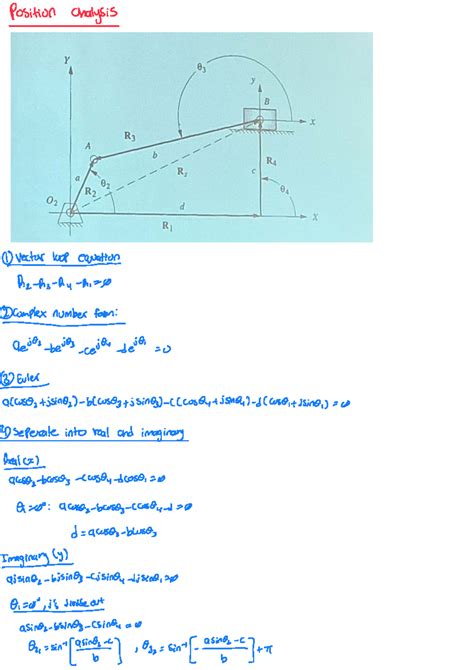 Position analysis
Y
θ3
y
B
X
A
R3
b
a
R2
θ2
Rs
R4
c
θ4
O2
d
X
R1
① Vector loop equation
R2-R3-R4-R1=0
② Complex number form:
ae^jθ2 -be^jθ3 -ce^jθ4 -de^jθ1 =0
③ Euler
a(cosθ2+jsinθ2)-b(cosθ3+jsinθ3)-c(cosθ4+jsinθ4)-d(cosθ1+jsinθ1)=0
Seperate into real and imaginary
Real(x)
acosθ2-bcosθ3-ccosθ4-dcosθ1=0
θ1=0°: acosθ2-bcosθ3-ccosθ4-d=0
d=acosθ2-bcosθ3
Imaginary(y)
ajsinθ2-bjsinθ3-cjsinθ4-djsinθ1=0
θ1=0°, j's divide out
asinθ2-bsinθ3-csinθ4=0
θ31=sin⁻¹[asinθ2-c/b] , θ32=sin⁻¹[-asinθ2-c/b]+π